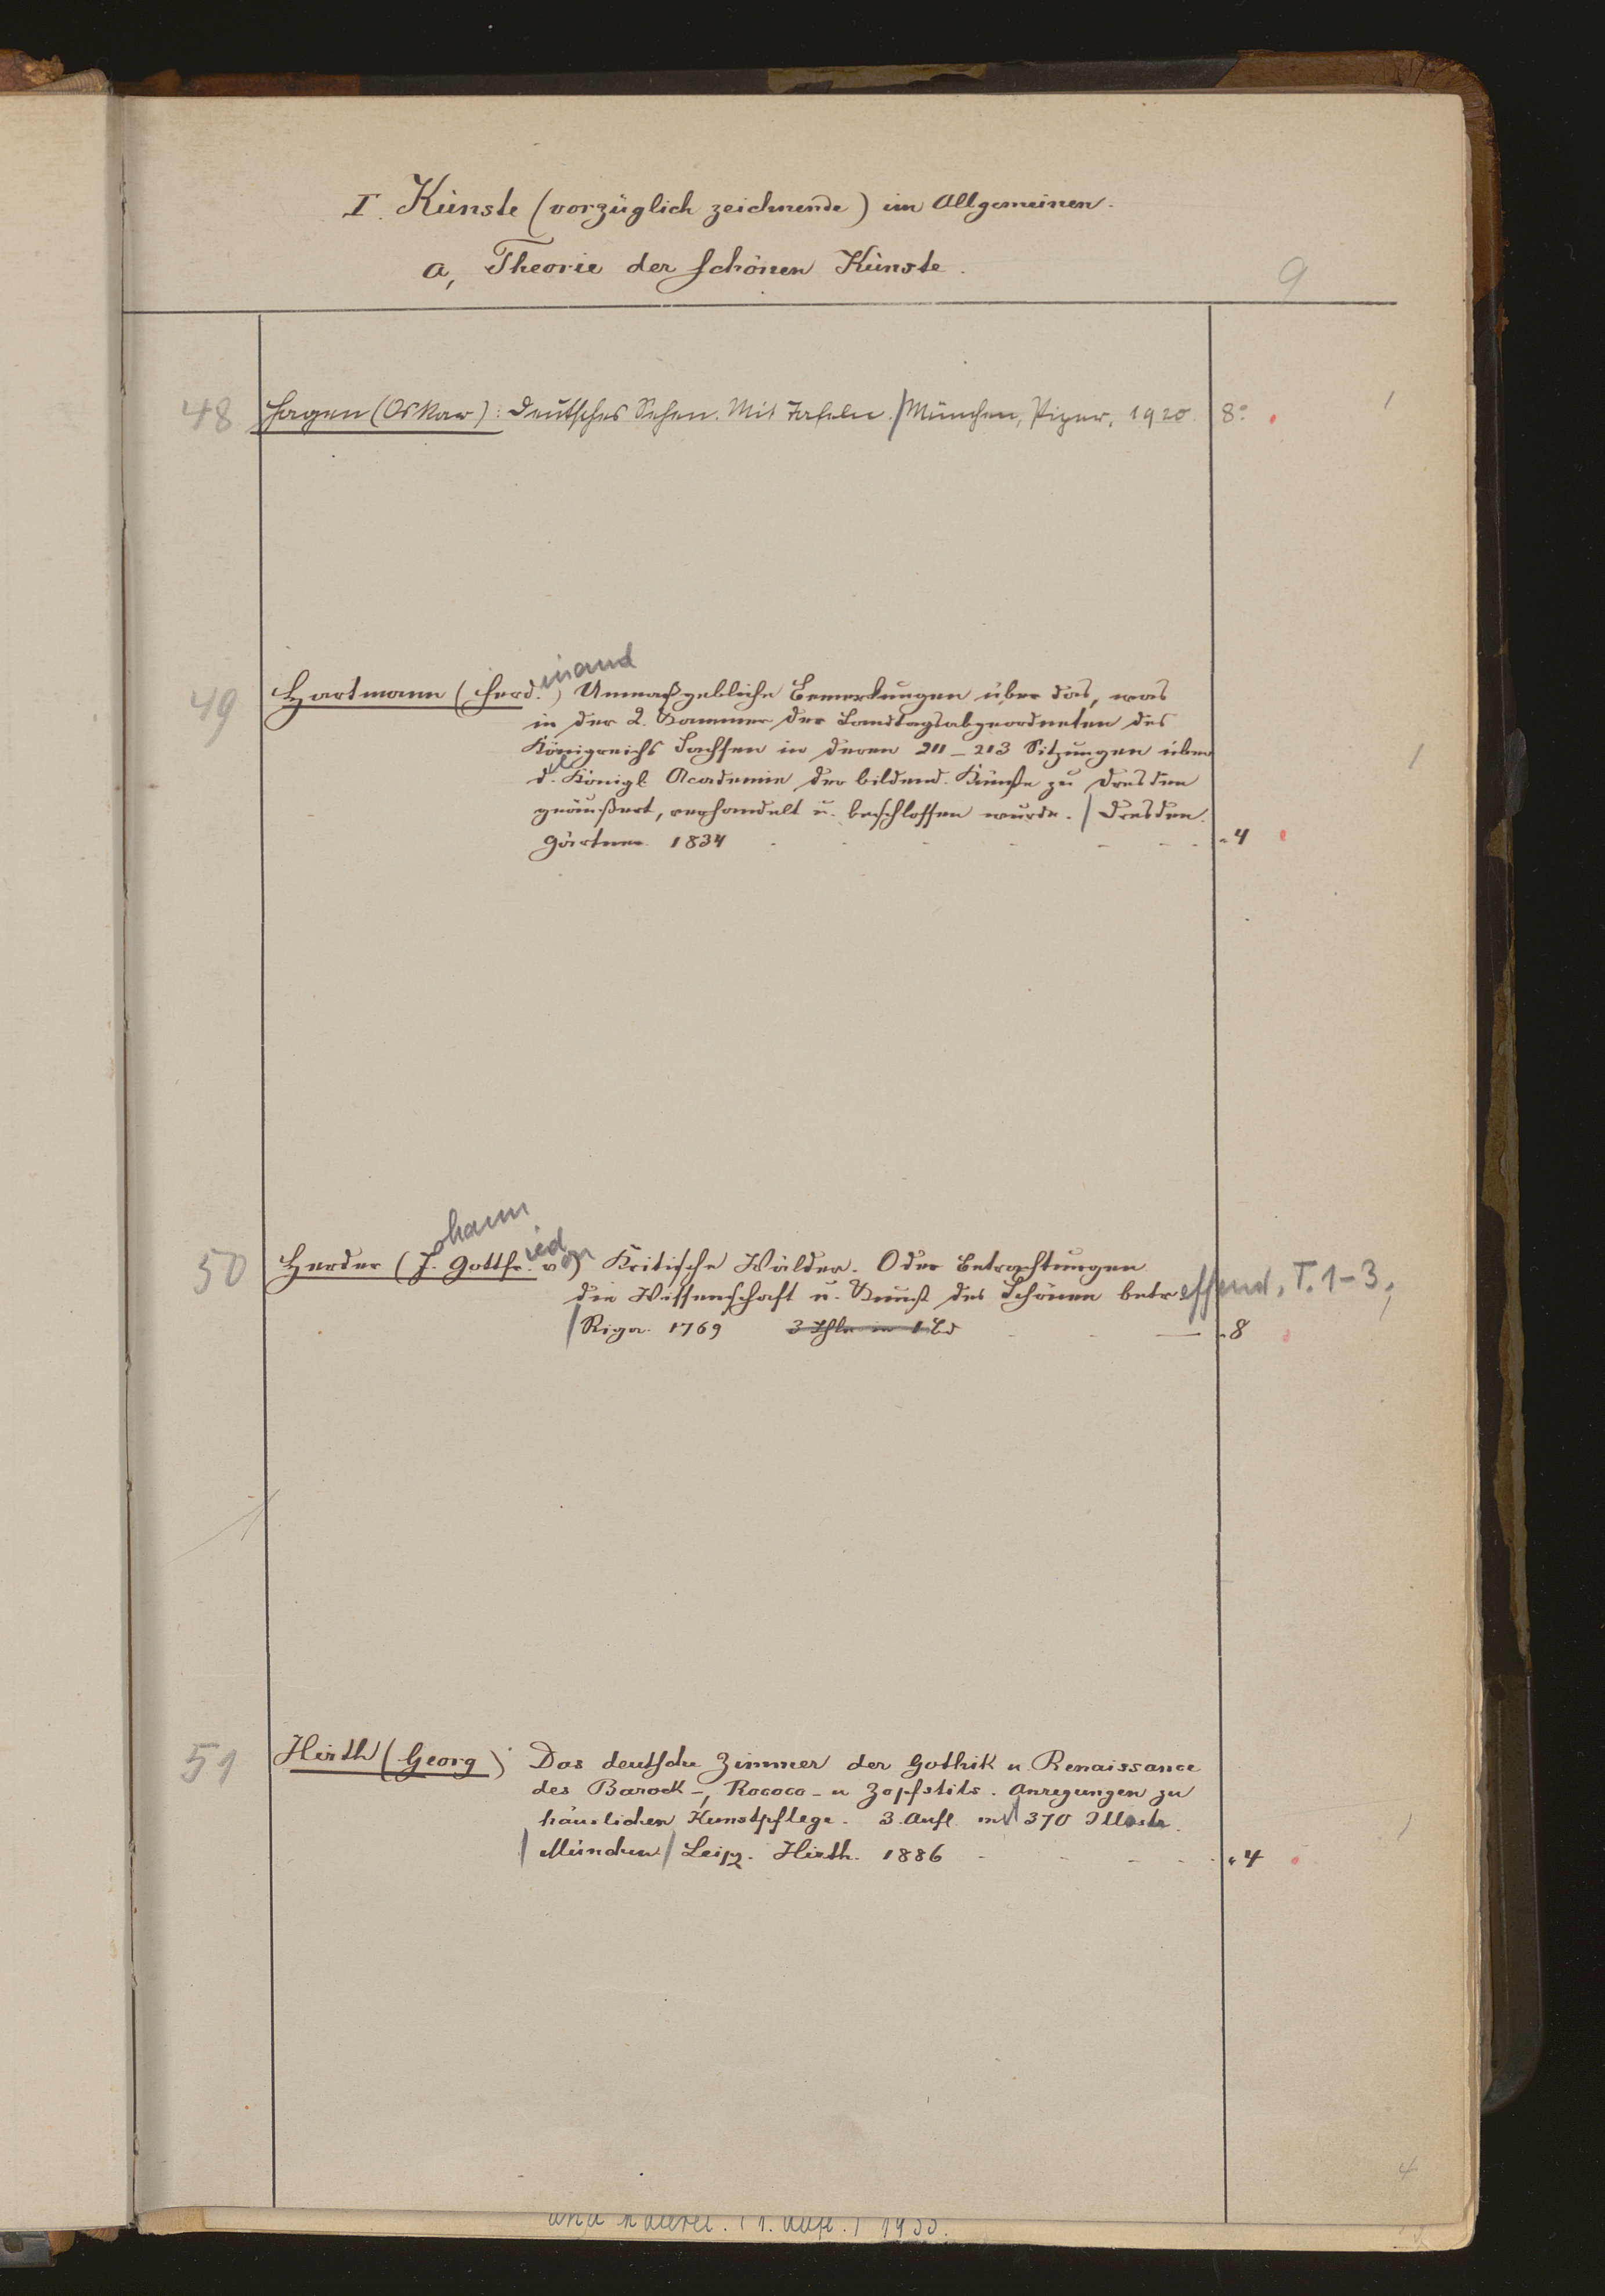 I. Künste (vorzüglich zeichnende) im Allgemeinen.
a, Theorie der schönen Künste.
9
48 Hagen (Oskar): Deutsches Sehen. Mit Tafeln. / München, Piper, 1920. 8° 1
inand
49 Hartmann (Ferd.) Unmaßgebliche Bemerkungen über das, was
in der 2. Kammer der Landtagsabgeordneten des
Königreichs Sachsen in deren 211-213 Sitzungen über 1
d. Königl. Academie der bildend. Künste zu Dresden
geäußert, verhandelt u. beschlossen wurde. / Dresden.
Gärtner. 1834 - - - - - - - " 4
ohann
ied on
50 Herder (J. Gottfr. v.) Kritische Wälder. Oder Betrachtungen
die Wissenschaft u. Kunst des Schönen betreffend, T. 1-3;
/ Riga. 1769 3 Thle in 1 Bd - - — " 8
51 Hirth (Georg) Das deutsche Zimmer der Gothik u. Renaissance
des Barock-, Rococo- u Zopfstils. Anregungen zu
häuslichen Kunstpflege. 3. Aufl. m 370 Illustr. 1
/ München / Leipz. Hirth. 1886 - - - - - " 4
4
und Malerei. (1. Aufl.) 1933.